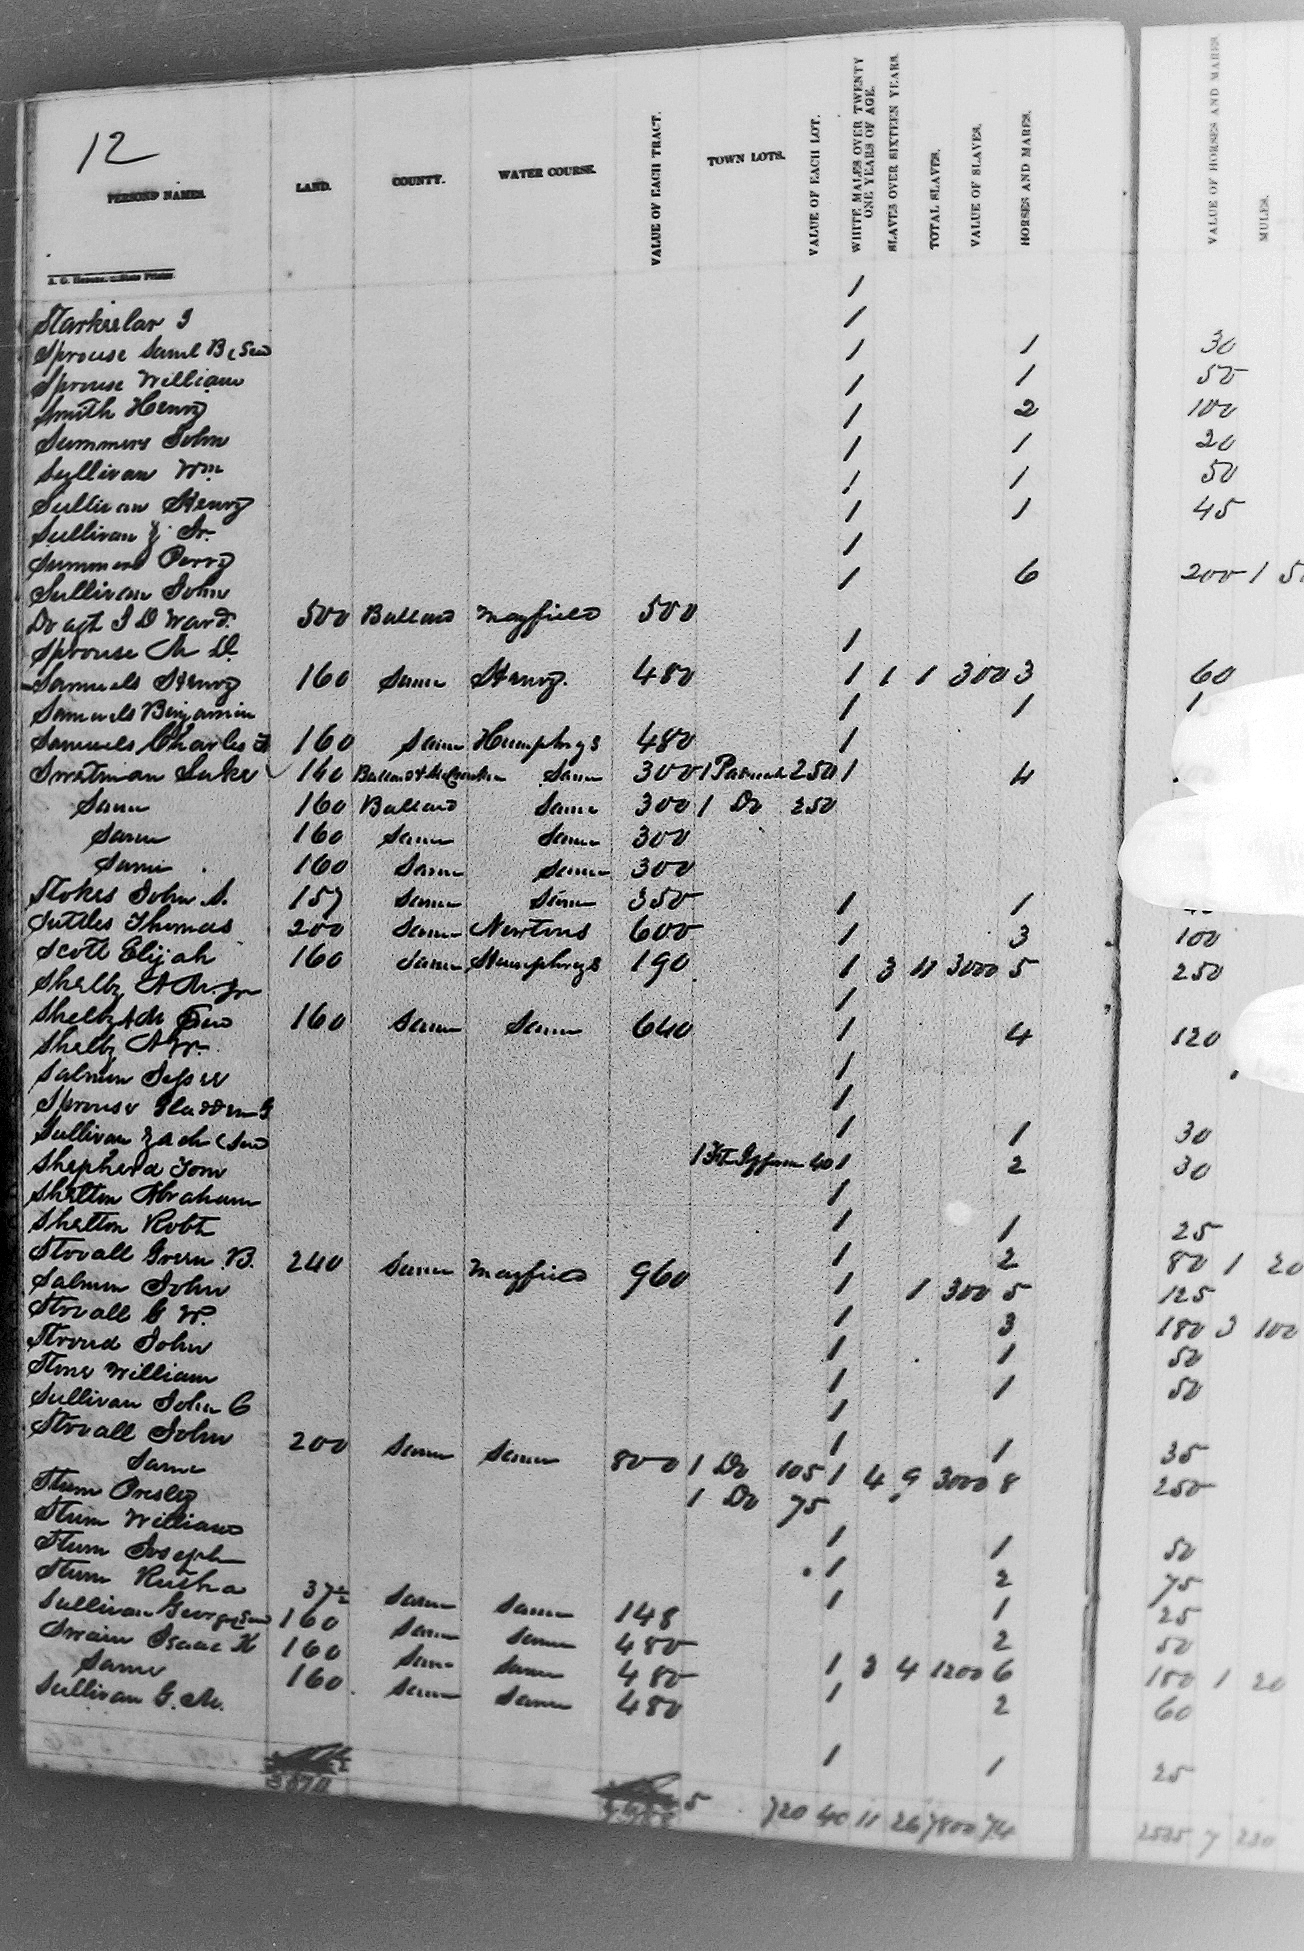 12
PERSONS NAMES. LAND. COUNTY. WATER COURSE. VALUE OF EACH TRACT. TOWN LOTS. VALUE OF EACH LOT. WHITE MALES OVER TWENTY ONE YEARS OF AGE. SLAVES OVER SIXTEEN YEARS. TOTAL SLAVES. VALUE OF SLAVES. HORSES AND MARES. VALUE OF HORSES AND MARES MULES.
1
1
Sprouse Saml B Sen 1 1 30
Sprouse William 1 1 50
Smith Henry 1 2 100
Summers John 1 1 20
Sullivan Wm 1 1 50
Sullivan Henry 1 1 45
Sullivan Z Jr. 1
Summers Perry 1 6 200 1
Sullivan John
Do agt J D Ward. 500 Ballard Mayfield 500
Sprouse M D. 1
Samuels Henry 160 Same Henry. 480 1 1 1 300 3 60
Samuels Benjamin 1 1
Samuels Charles 160 Same Humphrys 480 1
Swatman Luke 160 Ballard & McCracken Same 300 1 Paducah 250 1 4
Same 160 Ballard Same 300 1 Do 250
Same 160 Same Same 300
Same 160 Same Same 300
Stokes John S. 157 Same Same 350 1 1
Suttles Thomas 200 Same Newtons 600 1 3 100
Scott Elijah 160 Same Humphrys 190 1 3 11 3000 5 250
Shelby A M. Jr 1
Shelby A M Sen 160 Same Same 640 1 4 120
Shelby A W. 1
Salmon Jesse 1
Sprouse 1
Sullivan Zach Sen 1 30
Shepherd Tom 1 40 1 2 30
Shelton Abraham 1
Shelton Robt 1 1 25
Stovall Green B. 240 Same Mayfield 960 1 2 80 1 20
Salmon John 1 1 300 5 125
Stovall G W. 1 3 180 3 100
Stroud John 1 1 50
Stone William 1 1 50
Sullivan John C 1
Stovall John 200 Same Same 800 1 1 35
Same 1 Do 105 1 4 9 3000 8 250
Sturm Presley 1 Do 75
Sturm William 1 1 50
Sturm Joseph 1 2 75
Sturm Rutha 37 Same Same 148 1 1 25
Sullivan George Sen 160 Same Same 480 2 50
Swain Isaac K 160 Same Same 480 1 3 4 1200 6 180 1 20
Same 160 Same Same 480 1 2 60
Sullivan G. M. 1 1 25
5 720 40 11 26 7800 74 2525 7 230